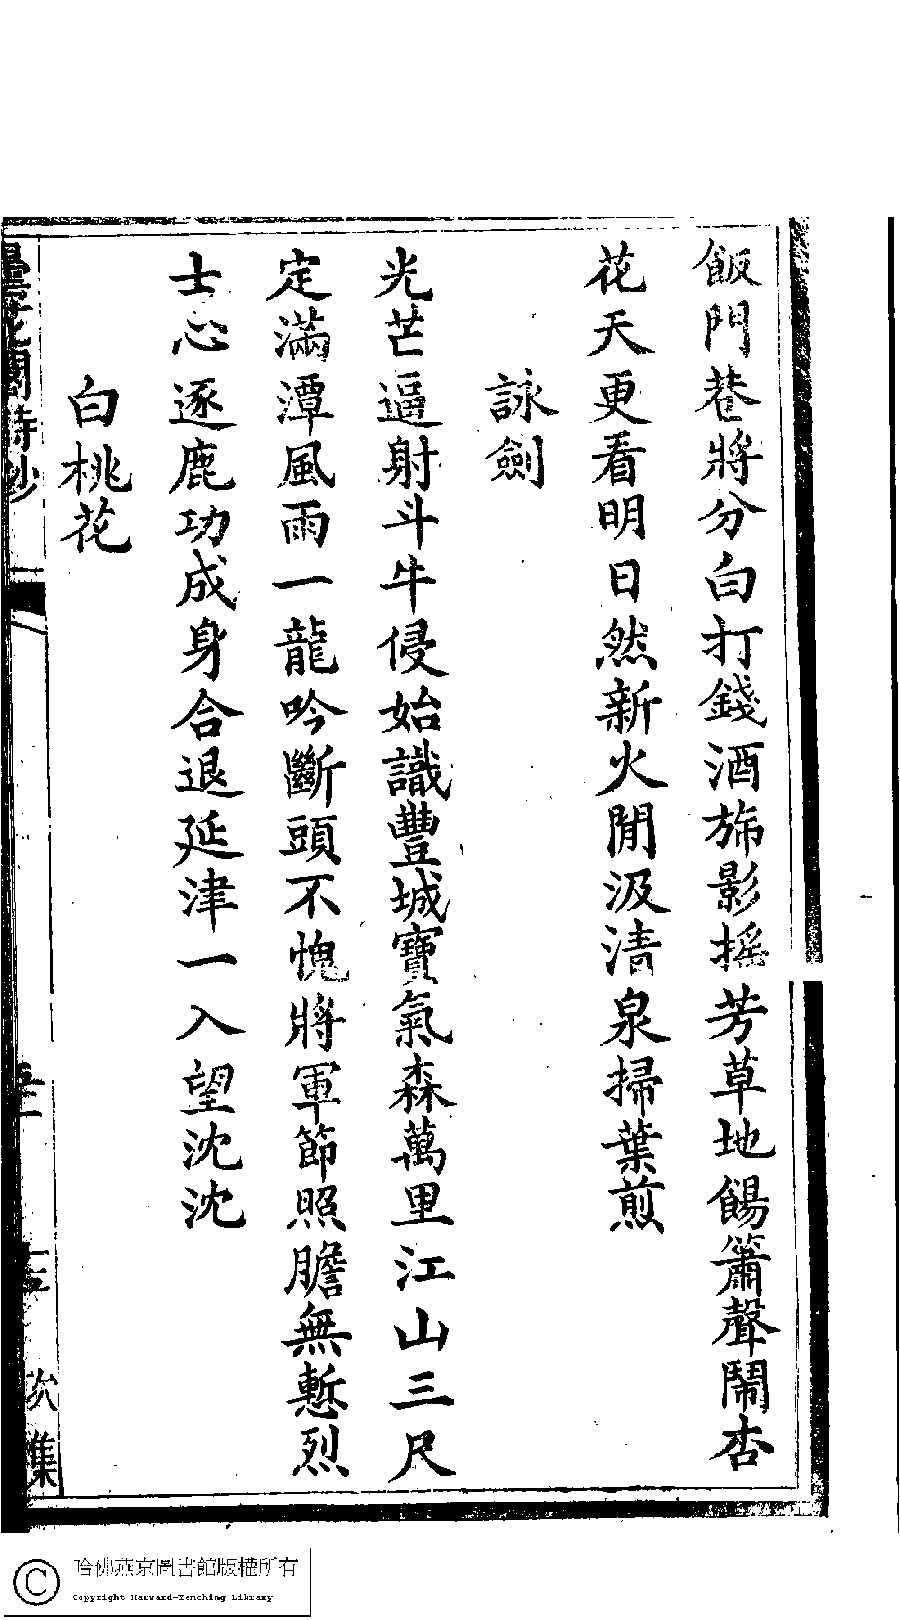 飯門巷將分白打錢酒旆影摇芳草地餳簫聲鬧杏
花天更看明日然新火閒汲清泉掃葉煎
詠劍
光芒逼射斗牛侵始識豐城寶氣森萬里江山三尺
定滿潭風雨一龍吟斷頭不愧將軍節照膽無慙烈
士心逐鹿功成身合退延津一入望沈沈
白桃花
次集
哈佛燕京圖書館版權所有
Copyright Harvard-Yenching Library